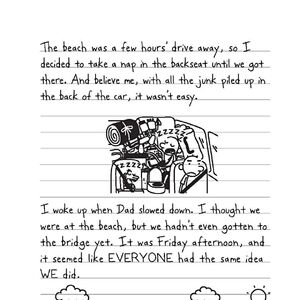 The beach was a few hours' drive away, so I
decided to take a nap in the backseat until we got
there. And believe me, with all the junk piled up in
the back of the car, it wasn't easy.
I woke up when Dad slowed down. I thought we
were at the beach, but we hadn't even gotten to
the bridge yet. It was Friday afternoon, and
it seemed like EVERYONE had the same idea
WE did.